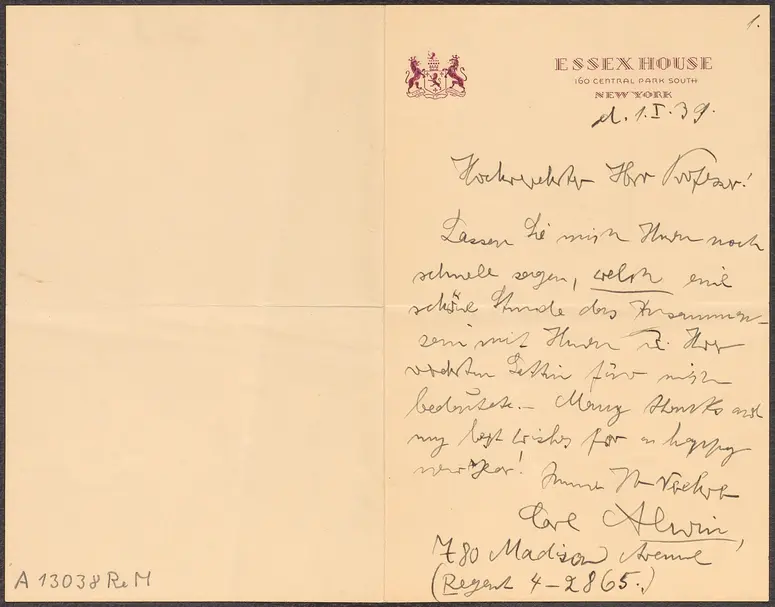 1.
ESSEX HOUSE
160 CENTRAL PARK SOUTH
NEW YORK
d. 1.I.39.
Hochverehrter Herr Professor!
Lassen Sie mich Ihnen noch
schnell sagen, welch eine
schöne Stunde das Zusammen-
sein mit Ihnen u. Ihrer
verehrten Gattin für mich
bedeutete. – Many thanks and
my best wishes for a happy
new Year!
Immer Ihr Verehrer
Carl Alwin,
780 Madison Avenue
(Regent 4-2865.)
A 13038 Re M